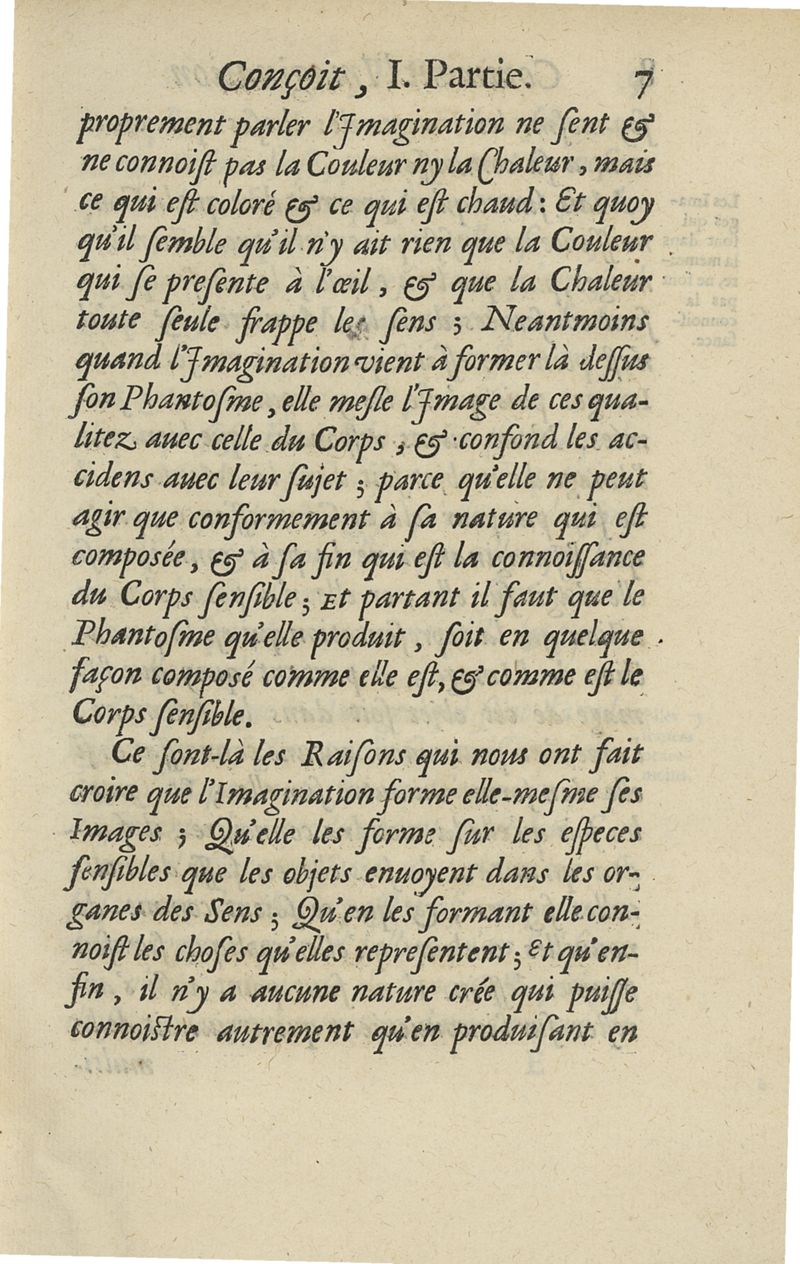 Conçoit, I. Partie. 7
proprement parler l'Imagination ne ſent &
ne connoiſt pas la Couleur ny la Chaleur, mais
ce qui eſt coloré & ce qui eſt chaud: Et quoy
qu'il ſemble qu'il n'y ait rien que la Couleur
qui ſe preſente à l'œil, & que la Chaleur
toute ſeule frappe les ſens; Neantmoins
quand l'Imagination vient à former là deſſus
ſon Phantoſme, elle meſle l'Image de ces qua-
litez auec celle du Corps, & confond les ac-
cidens auec leur ſujet; parce qu'elle ne peut
agir que conformement à ſa nature qui eſt
composée, & à ſa fin qui eſt la connoiſſance
du Corps ſenſible; Et partant il faut que le
Phantoſme qu'elle produit, ſoit en quelque
façon composé comme elle eſt, & comme eſt le
Corps ſenſible.
Ce ſont-là les Raiſons qui nous ont fait
croire que l'Imagination forme elle-meſme ſes
Images; Qu'elle les forme ſur les eſpeces
ſenſibles que les objets enuoyent dans les or-
ganes des Sens; Qu'en les formant elle con-
noiſt les choſes qu'elles repreſentent; Et qu'en-
fin, il n'y a aucune nature crée qui puiſſe
connoiſtre autrement qu'en produiſant en